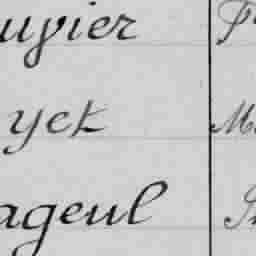 uvier
yet
ageul